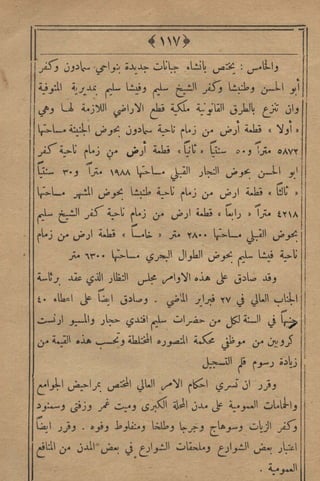 ﴿١١٧﴾
والخامس: يختص بانشاء جبانات جديدة بنواحي سمادون وكفر
أبو الحسن وطنبشا وكفر الشيخ سليم وفيشا سليم بمديرية المنوفية
وان تنزع بالطرق القانونية ملكية قطع الاراضي اللازمة لها وهي
«أولا» قطعة أرض من زمام ناحية سمادون بحوض الجنينة مساحتها
٥٨٧٢ متراً و٥٠ سنتياً «ثانياً» قطعة أرض من زمام ناحية كفر
ابو الحسن بحوض النجار القبلي مساحتها ١٩٨٨ متراً و٣٠ سنتياً
«ثالثاً» قطعة ارض من زمام ناحية طنبشا بحوض المشهر مساحتها
٤٢١٨ متراً «رابعاً» قطعة ارض من زمام ناحية كفر الشيخ سليم
بحوض القبلي مساحتها ٢٨٠٠ متر «خامساً» قطعة ارض من زمام
ناحية فيشا سليم بحوض الطوال البحري مساحتها ٦٣٠٠ متر
وقد صادق على هذه الاوامر مجلس النظار الذي عقد برئاسة
الجناب العالي في ٢٧ فبراير الماضي . وصادق ايضاً على اعطاء ٤٠
في السنة لكل من حضرات سليم افندي حجار والمسيو ارنست
كروبين من موظفي محكمة المنصوره المختلطة وتحسب هذه القيمة من
زيادة رسوم قلم التسجيل
وقرر ان تسري احكام الامر العالي المختص بمراحيض الجوامع
والحمامات العمومية على مدن المحلة الكبرى وميت غمر وزفتى وسمنود
وكفر الزيات وسوهاج وجرجا وطلخا ومنفلوط وفوه . وقرر ايضاً
اعتبار بعض الشوارع وملحقات الشوارع في بعض المدن من المنافع
العمومية .